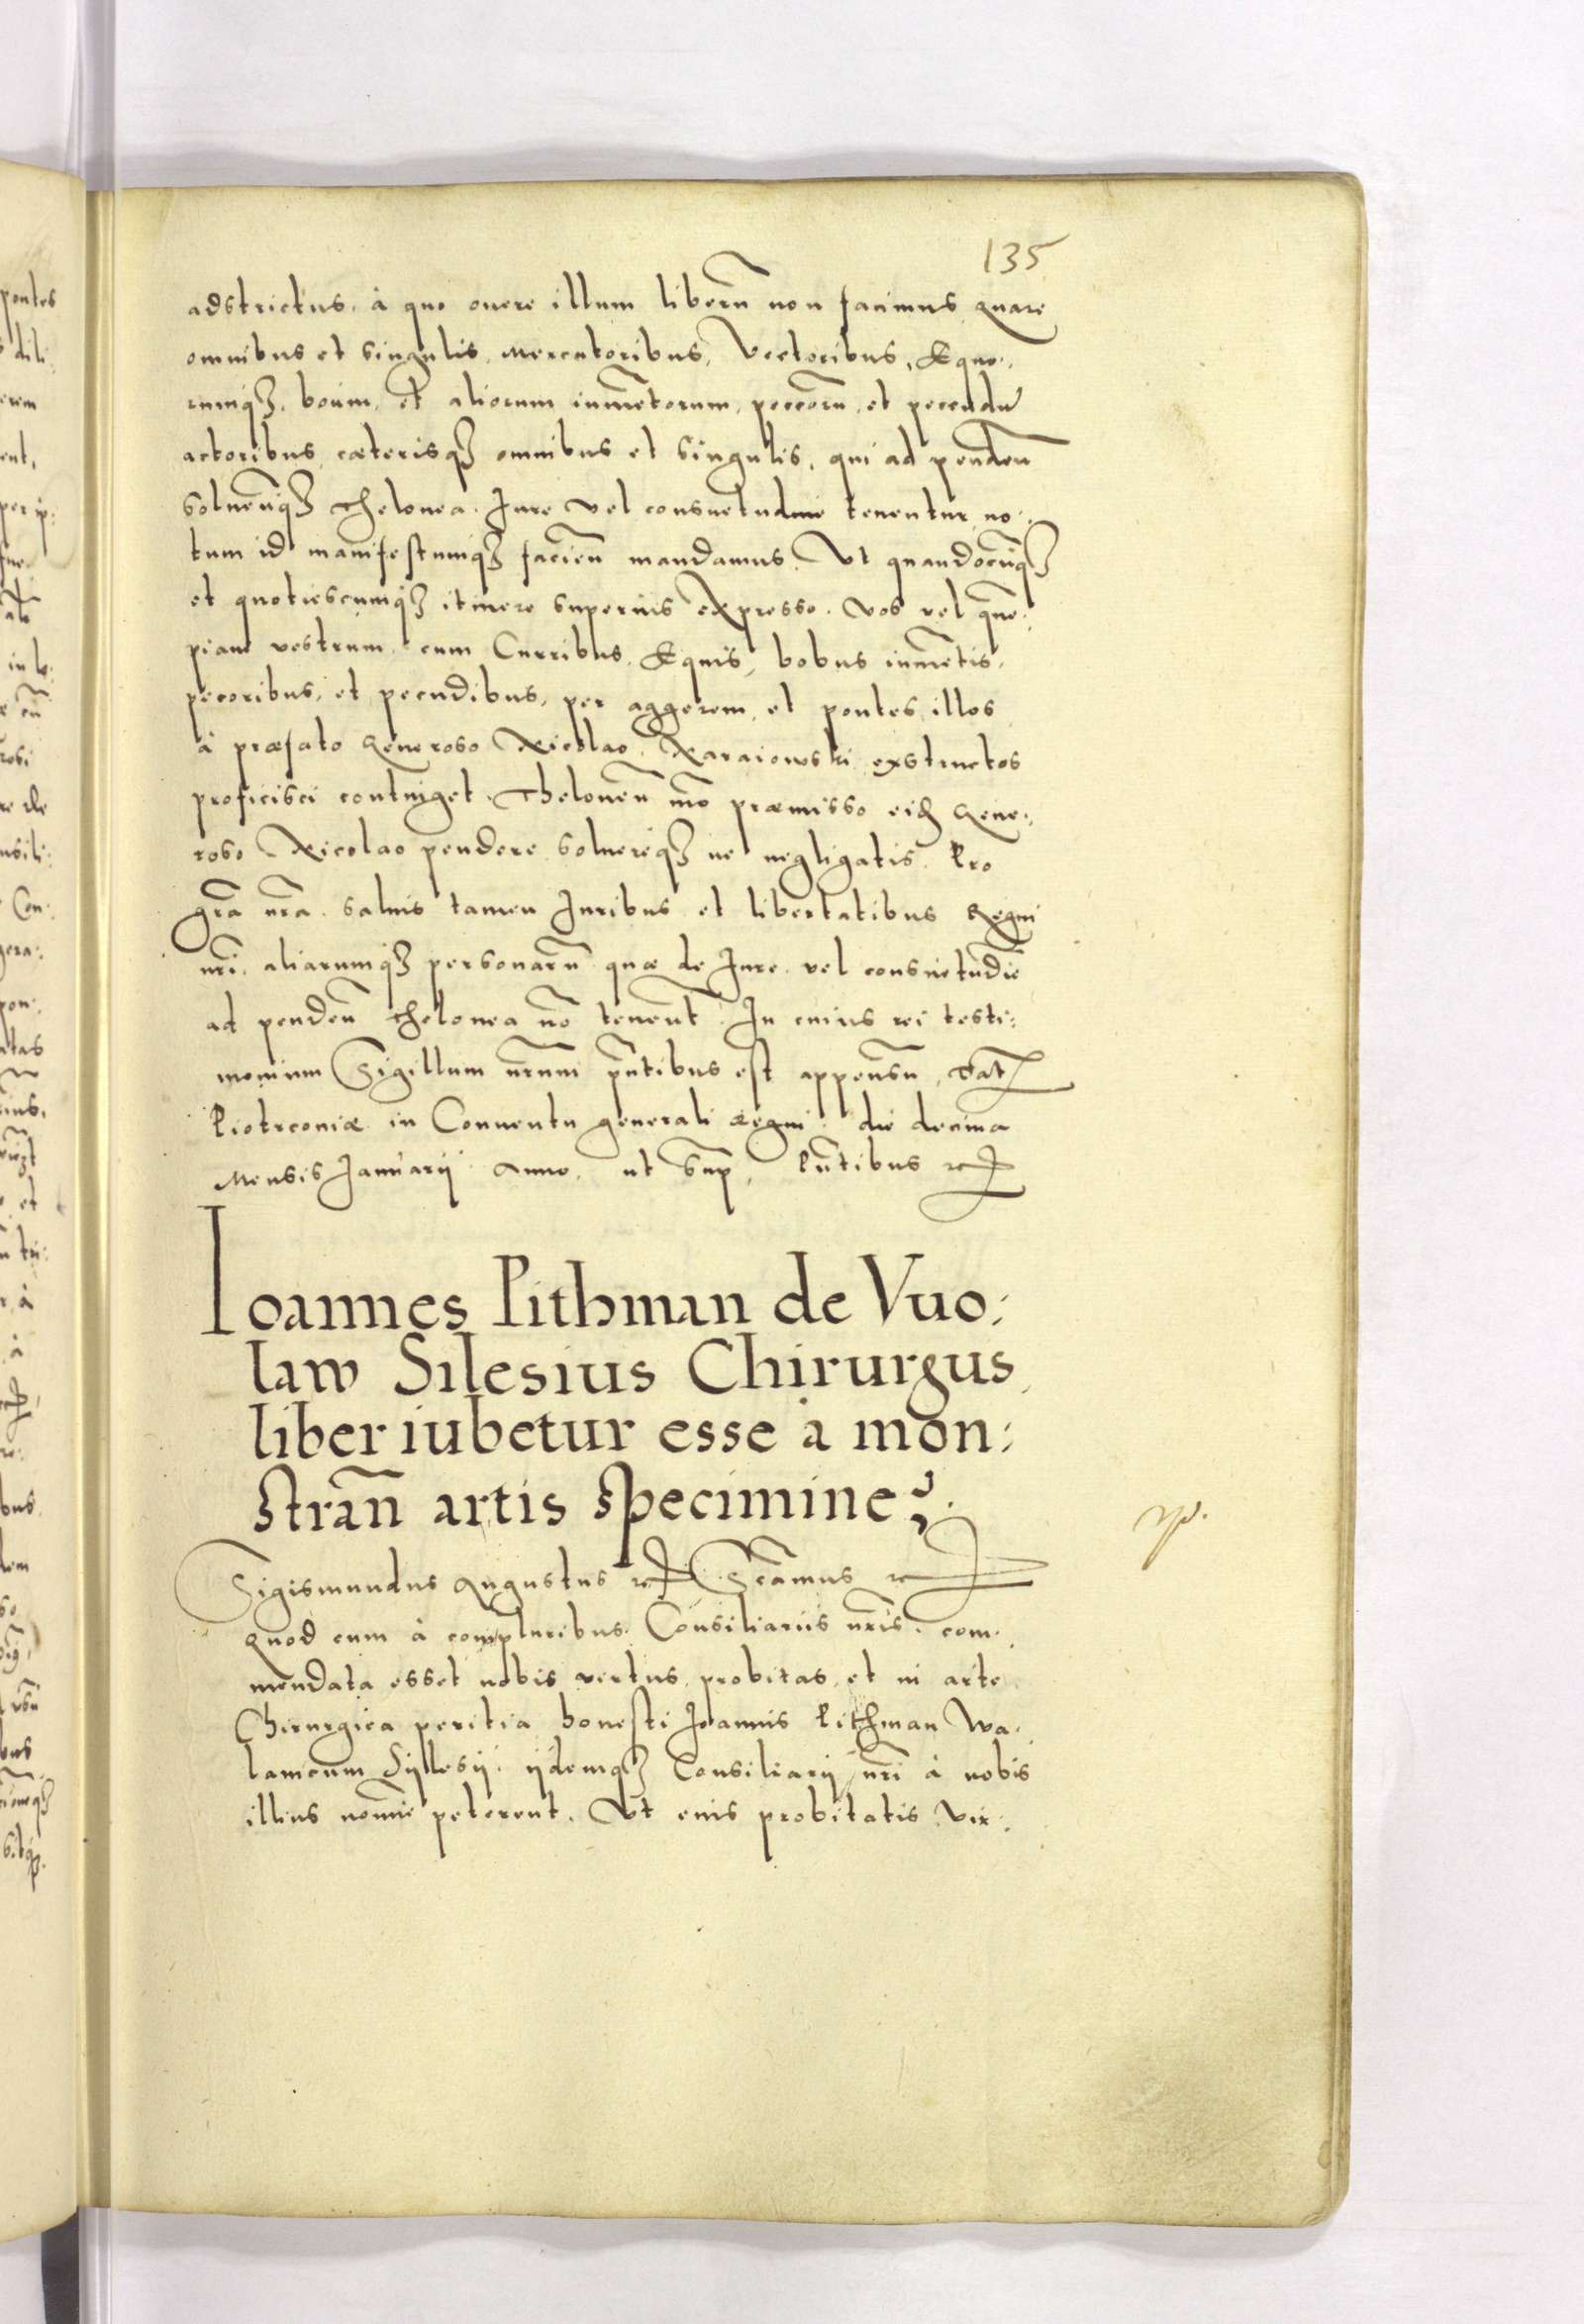 135
adstrictus, à quo onere illum liberũ non facimus quare
omnibus et singulis, Mercatoribus, Vectoribus, Equo:
rumq3, boum, et aliorum iumẽtorum, peccorũ, et pecudũ
actoribus, cæterisq3 omnibus et singulis, qui ad pendeñ
soluenq3 Thelonea, Iure vel consuetudine tenentur, no:
tum id manifestumq3 facieñ mandamus. Vt quandocũq3
et quotiescumq3 itinere superius expresso, vos vel quem:
piam vestrum, cum Curribus, Equis, bobus, iumẽtis,
pecoribus, et pecudibus, per aggerem, et pontes, illos
à præfato Generoso Nicolao Naraiowski exstructos
proficisci continget. Theloneũ mõ præmisso eid Gene:
roso Nicolao pendere, soluereq3 ne negligatis. Pro
grã nrã. Saluis tamen Iuribus et libertatibus Regni
nri, aliarumq3 personarũ, quæ de Iure vel consuetudĩe
ad pendeñ Thelonea nõ tenent̃. In cuius rei testi:
monium Sigillum nrum pñtibus est appensũ, Dat
Piotrconiæ in Conuentu generali Regni, die decima
Mensis Ianuarij Anno, ut sup, Pñtibus etc
Ioannes Pithman de Vuo:
law Silesius Chirurgus
liber iubetur esse à mon:
strañ artis specimine
Sigismundus Augustus etc Scãmus etc
Quod cum à compluribus Consiliariis nris, com:
mendata esset nobis virtus, probitas, et in arte
Chirurgica peritia honesti Ioannis Pithman Wa:
lamcum Syllesij, ijdemq3 Consiliarij nri à nobis
illius noĩe peterent. Vt eius probitatis, Vir: